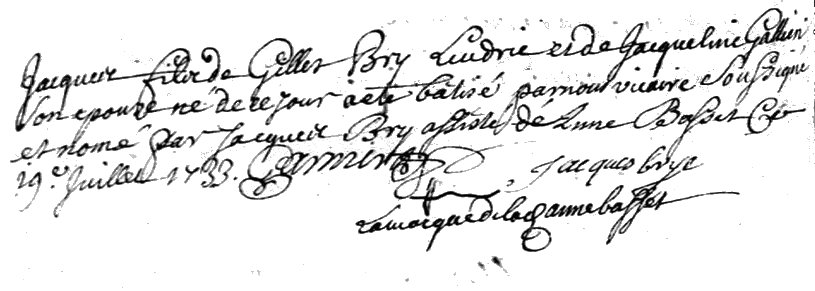 Jacques filx de Gilles Bry et de Jacqueline Gallien
son epouse né de ce jour a été batisé par nous vicaire soussigné
et nomé par Jacques Bry assisté dé Anne Basset ce
19e Juillet 1733.
jacques brye
La marque de lad anne basset